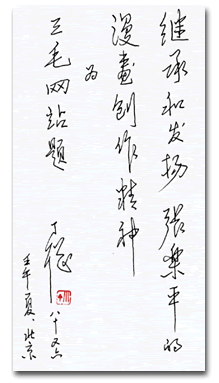 继承和发扬張樂平的
漫畫创作精神
为
三毛网站题
丁聪
八十又六
壬午夏、北京